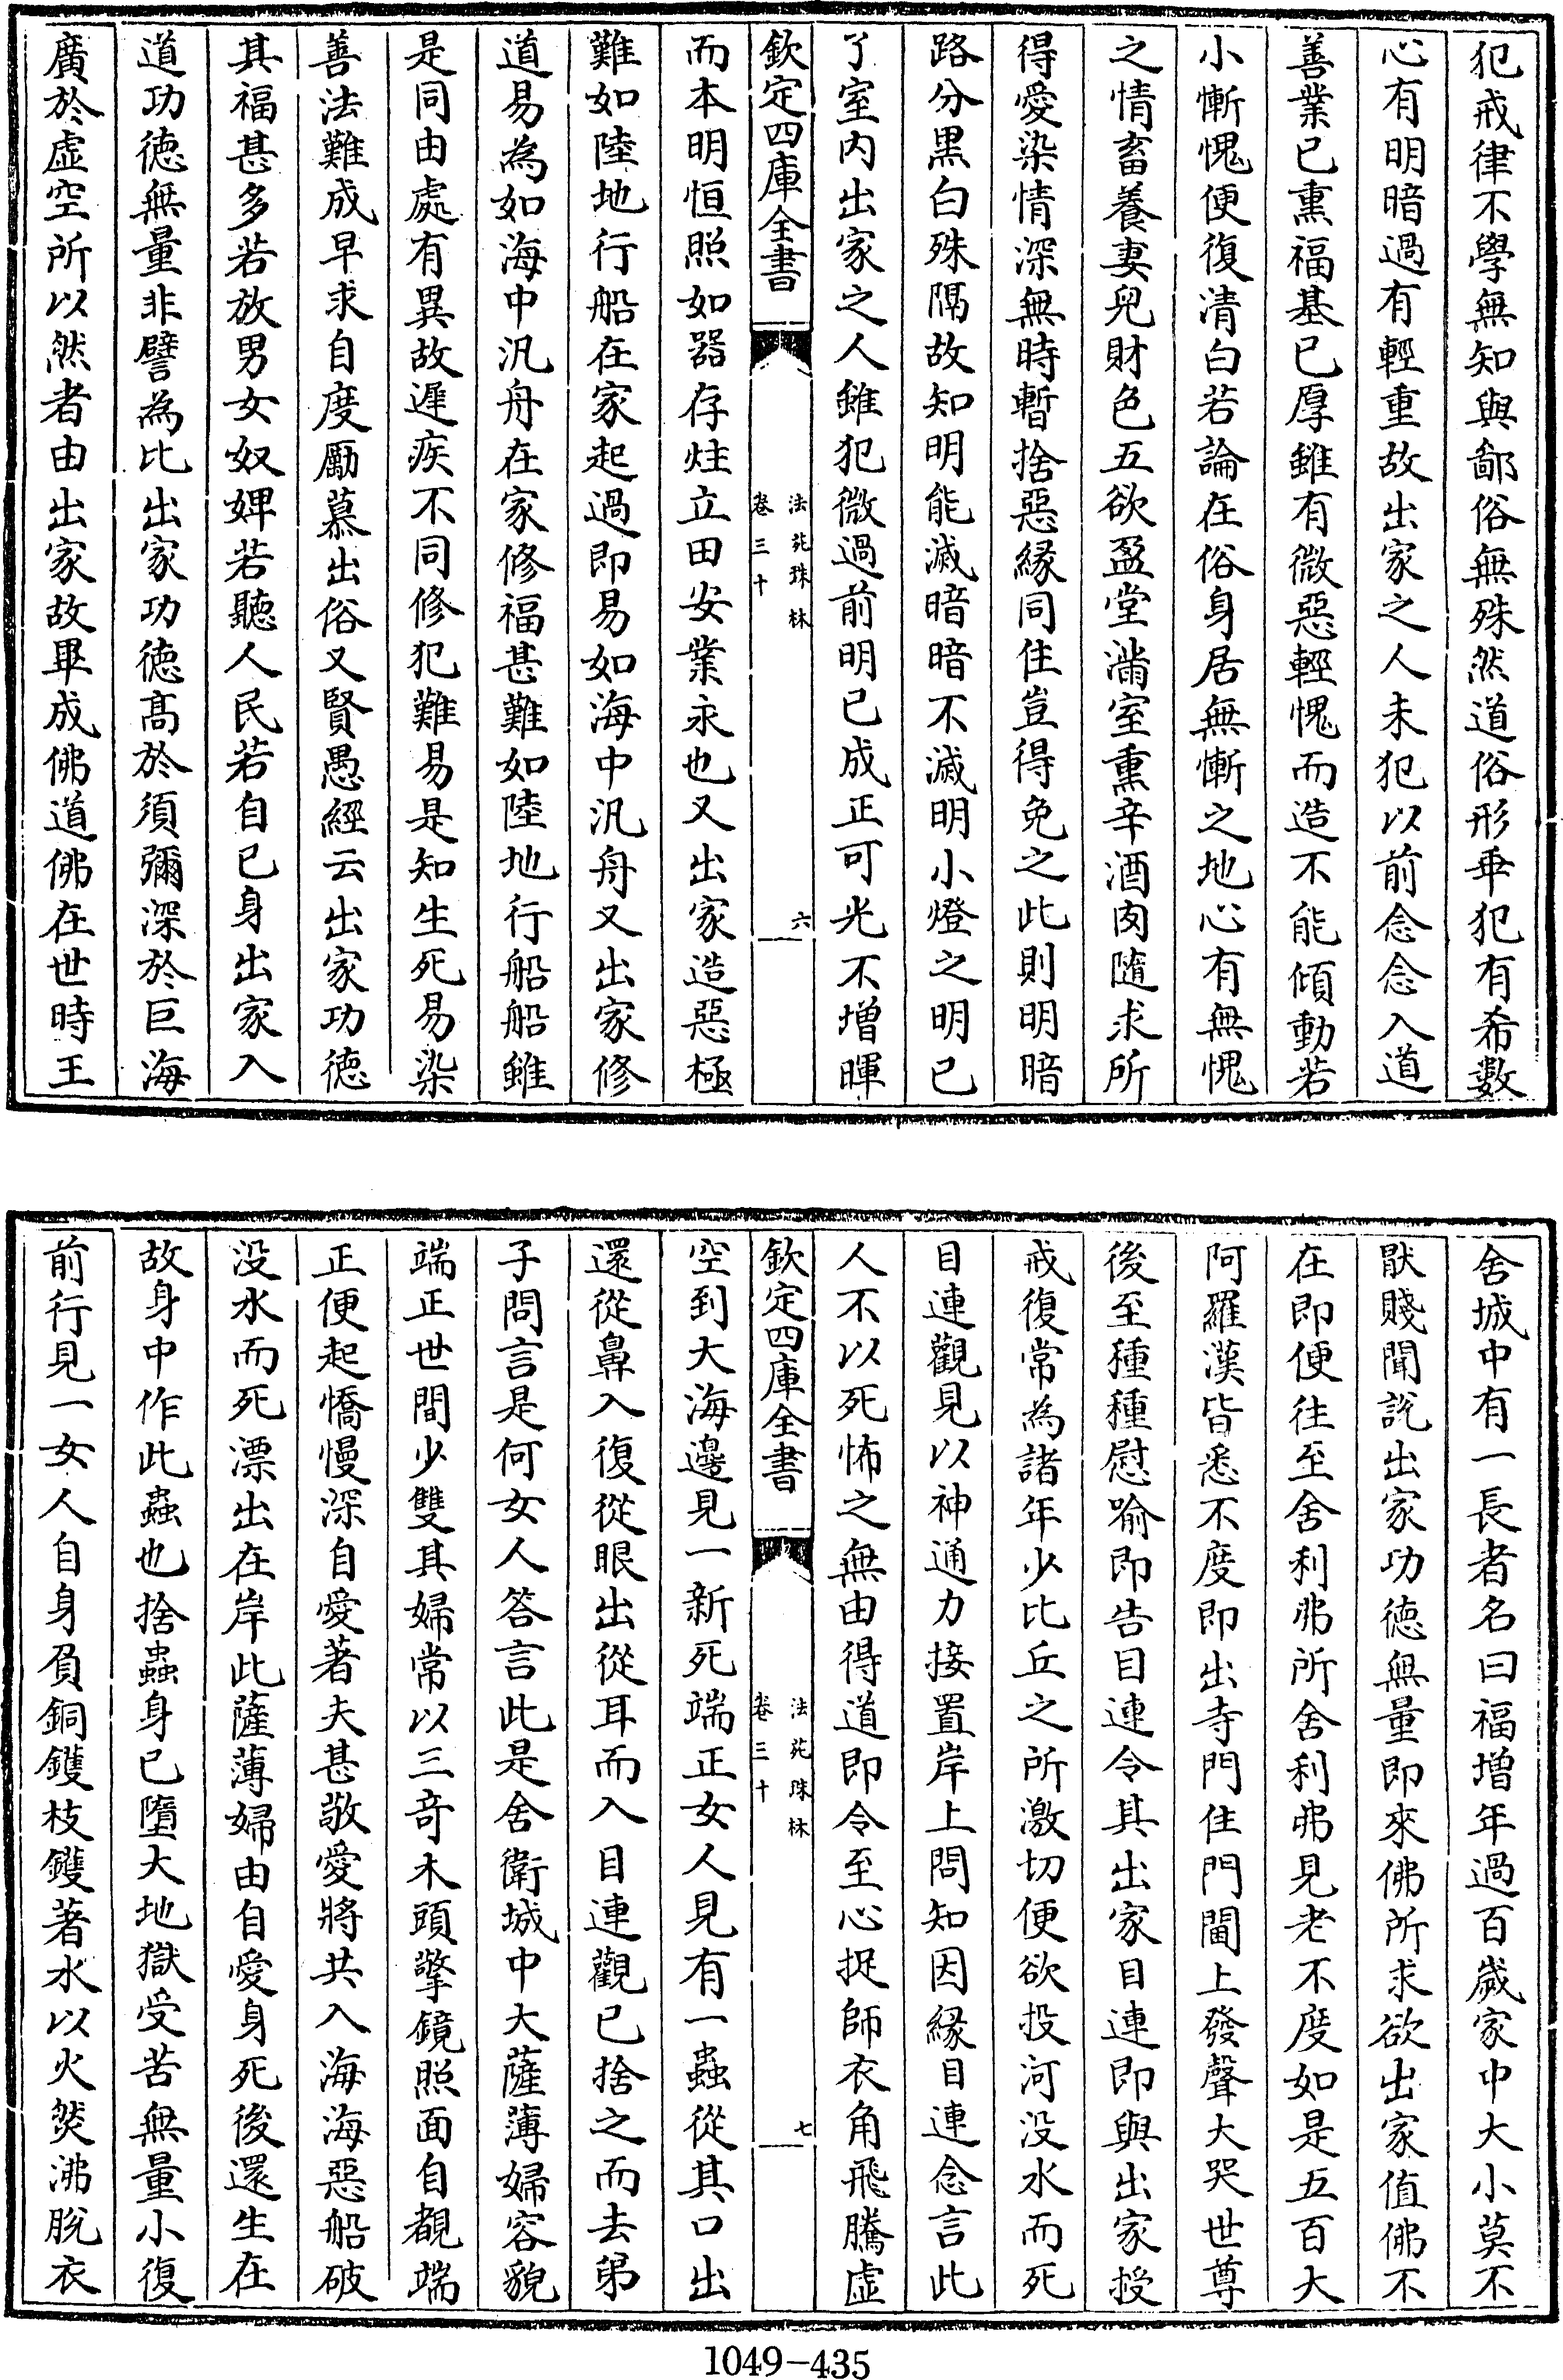 犯戒律不學無知與鄙俗無殊然道俗形乖犯有希數
心有明暗過有輕重故出家之人未犯以前念念入道
善業已熏福基已厚雖有微惡輕愧而造不能傾動若
小慚愧便復清白若論在俗身居無慚之地心有無愧
之情畜養妻兒財色五欲盈堂滿室熏辛酒肉隨求所
得愛染情深無時暫捨惡緣同住豈得免之此則明暗
路分黒白殊隔故知明能滅暗暗不滅明小燈之明已
了室内出家之人雖犯微過前明已成正可光不增暉
欽定四庫全書
法苑珠林
卷三十
六
而本明恒照如器存炷立田安業永也又出家造惡極
難如陸地行船在家起過即易如海中汎舟又出家修
道易為如海中汎舟在家修福甚難如陸地行船船雖
是同由處有異故遲疾不同修犯難易是知生死易染
善法難成早求自度勵慕出俗又賢愚經云出家功徳
其福甚多若放男女奴婢若聽人民若自已身出家入
道功徳無量非譬為比出家功徳髙於須彌深於巨海
廣於虚空所以然者由出家故畢成佛道佛在世時王
舍城中有一長者名曰福增年過百嵗家中大小莫不
猒賤聞説出家功徳無量即來佛所求欲出家值佛不
在即便往至舍利弗所舍利弗見老不度如是五百大
阿羅漢皆悉不度即出寺門住門閫上發聲大哭世尊
後至種種慰喻即告目連令其出家目連即與出家授
戒復常為諸年少比丘之所激切便欲投河没水而死
目連觀見以神通力接置岸上問知因緣目連念言此
人不以死怖之無由得道即令至心捉師衣角飛騰虚
欽定四庫全書
法苑珠林
卷三十
七
空到大海邊見一新死端正女人見有一蟲從其口出
還從鼻入復從眼出從耳而入目連觀已捨之而去弟
子問言是何女人答言此是舍衛城中大薩薄婦容貌
端正世間少雙其婦常以三竒木頭擎鏡照面自覩端
正便起憍慢深自愛著夫甚敬愛將共入海海惡船破
没水而死漂出在岸此薩薄婦由自愛身死後還生在
故身中作此蟲也捨蟲身已墮大地獄受苦無量小復
前行見一女人自身負銅鑊枝鑊著水以火焚沸脫衣
1049-435